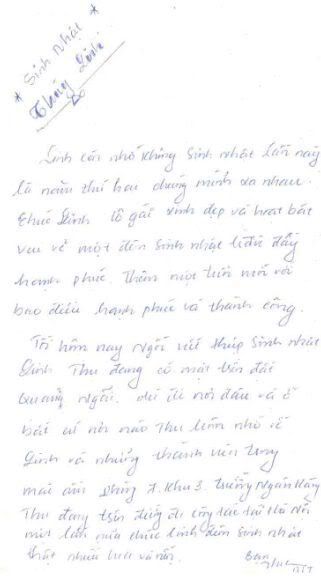 * Sinh Nhật *
Tháng
Linh còn nhớ không sinh nhật lần này
là năm thứ hai chúng mình xa nhau.
Chúc Linh cô gái xinh đẹp và hoạt bát
vui vẻ một đêm sinh nhật đầy
hạnh phúc. Thêm một tuổi mới với
bao điều hạnh phúc và thành công.
Tối hôm nay ngồi viết thiệp sinh nhật
Linh Thu đang có mặt đất
Quảng Ngãi. dù đi nơi đâu và ở
bất cứ nơi nào Thu luôn nhớ về
Linh và những thành viên trong
mái ấm phòng 7. khu 3. trường Ngân Hàng
Thu đang trên đường đi công tác Hà Nội
một lần nữa chúc Linh đêm sinh nhật
thật nhiều hoa và nến.
Bạn